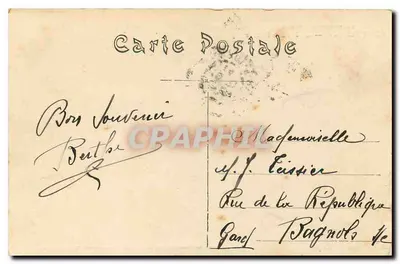 Carte Postale
Bon Souvenir
Berthe
CRAPHIL
Mademoiselle
M. J. Teissier
Rue de la République
Bagnols s/c
Gard